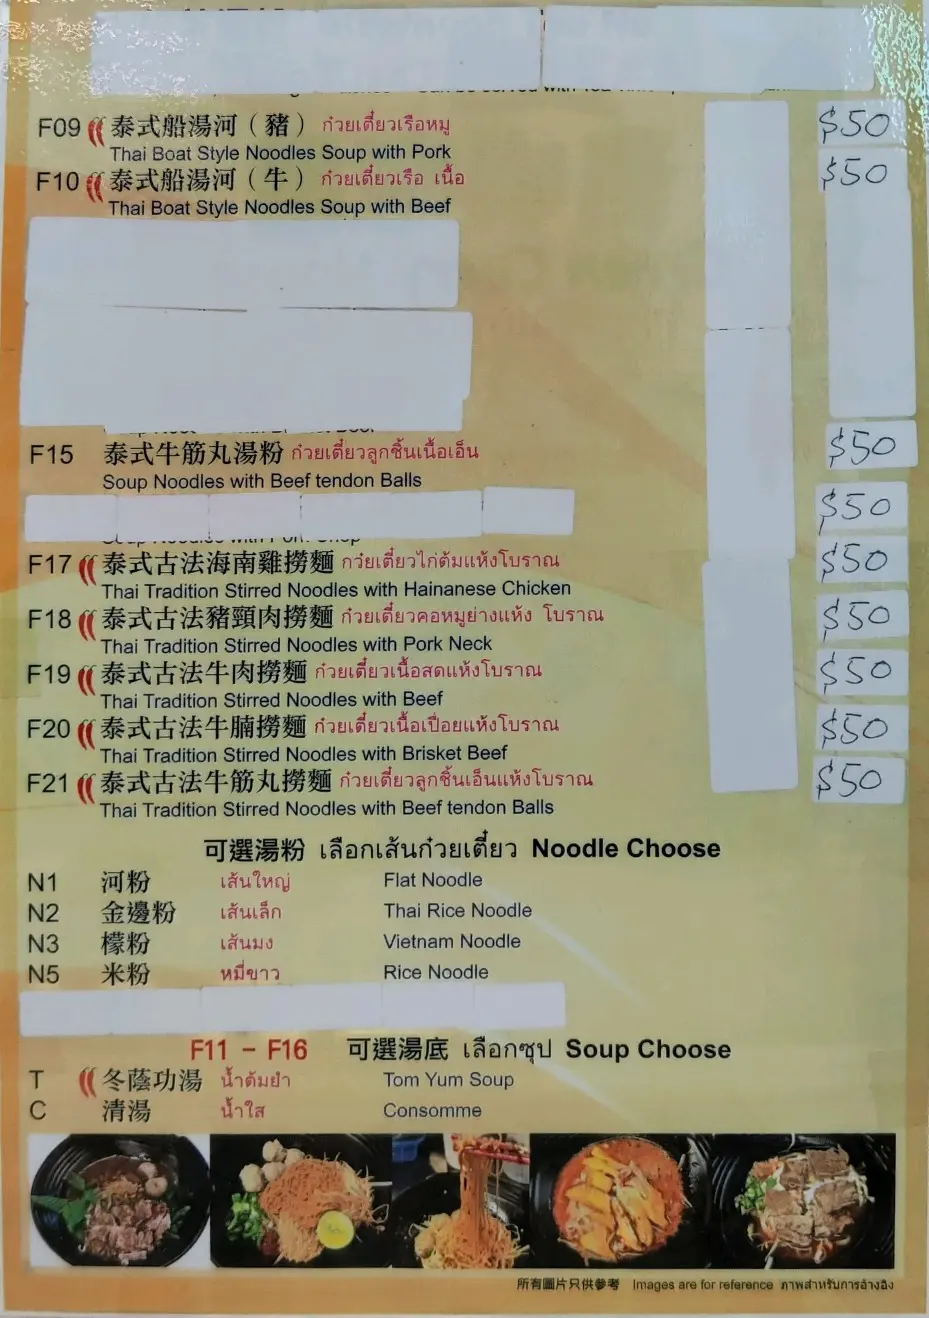 F09 泰式船湯河（豬） ก๋วยเตี๋ยวเรือหมู $50
Thai Boat Style Noodles Soup with Pork
F10 泰式船湯河（牛） ก๋วยเตี๋ยวเรือ เนื้อ $50
Thai Boat Style Noodles Soup with Beef
F15 泰式牛筋丸湯粉 ก๋วยเตี๋ยวลูกชิ้นเนื้อเอ็น $50
Soup Noodles with Beef tendon Balls
$50
F17 泰式古法海南雞撈麵 กว๋ยเตี๋ยวไก่ต้มแห้งโบราณ $50
Thai Tradition Stirred Noodles with Hainanese Chicken
F18 泰式古法豬頸肉撈麵 ก๋วยเตี๋ยวคอหมูย่างแห้ง โบราณ $50
Thai Tradition Stirred Noodles with Pork Neck
F19 泰式古法牛肉撈麵 ก๋วยเตี๋ยวเนื้อสดแห้งโบราณ $50
Thai Tradition Stirred Noodles with Beef
F20 泰式古法牛腩撈麵 ก๋วยเตี๋ยวเนื้อเปื่อยแห้งโบราณ $50
Thai Tradition Stirred Noodles with Brisket Beef
F21 泰式古法牛筋丸撈麵 ก๋วยเตี๋ยวลูกชิ้นเอ็นแห้งโบราณ $50
Thai Tradition Stirred Noodles with Beef tendon Balls
可選湯粉 เลือกเส้นก๋วยเตี๋ยว Noodle Choose
N1 河粉 เส้นใหญ่ Flat Noodle
N2 金邊粉 เส้นเล็ก Thai Rice Noodle
N3 檬粉 เส้นมง Vietnam Noodle
N5 米粉 หมี่ขาว Rice Noodle
F11 - F16 可選湯底 เลือกซุป Soup Choose
T 冬蔭功湯 น้ำต้มยำ Tom Yum Soup
C 清湯 น้ำใส Consomme
所有圖片只供參考 Images are for reference ภาพสำหรับการอ้างอิง